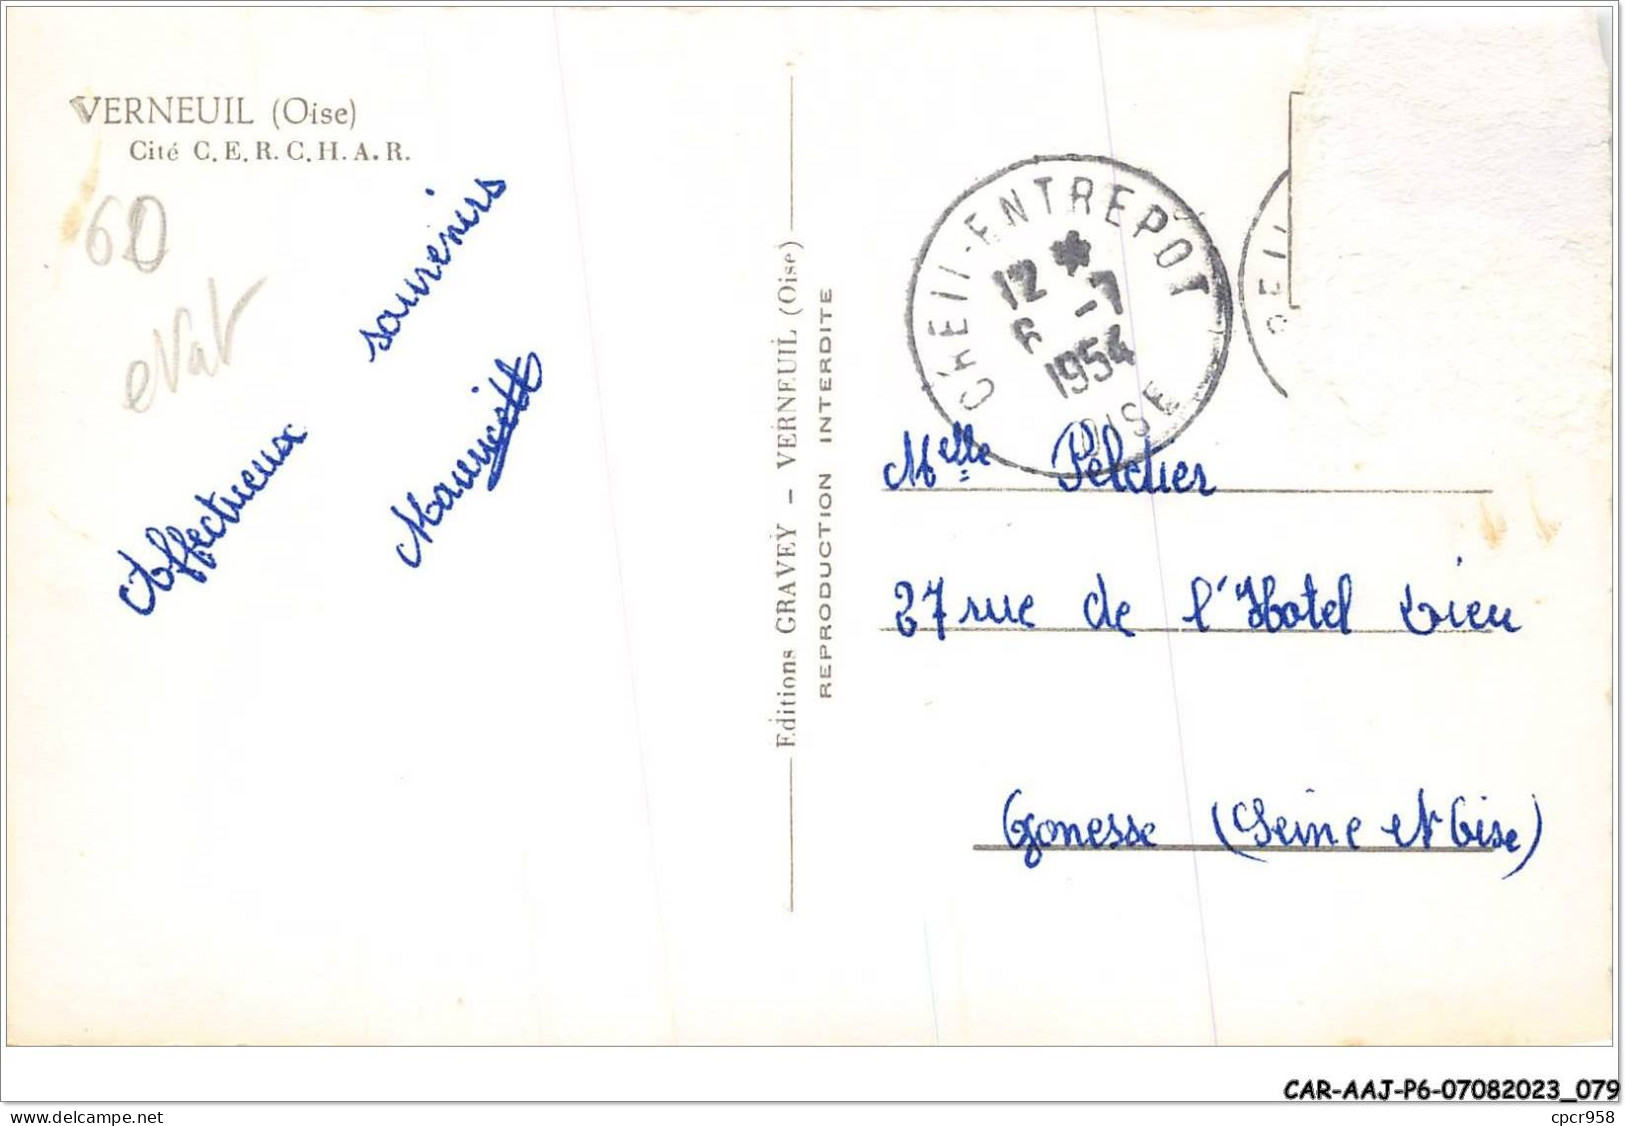 VERNEUIL (Oise)
Cité C.E.R.C.H.A.R.
60
Affectueux souvenirs
Éditions GRAVEY – VERNEUIL (Oise)
REPRODUCTION INTERDITE
CREIL-ENTREPOT
12 *
6 -7
1954
OISE
Melle Pelcher
27 rue de l'Hotel Dieu
Gonesse (Seine et Oise)
CAR-AAJ-P6-07082023_079
www.delcampe.net
cpcr958